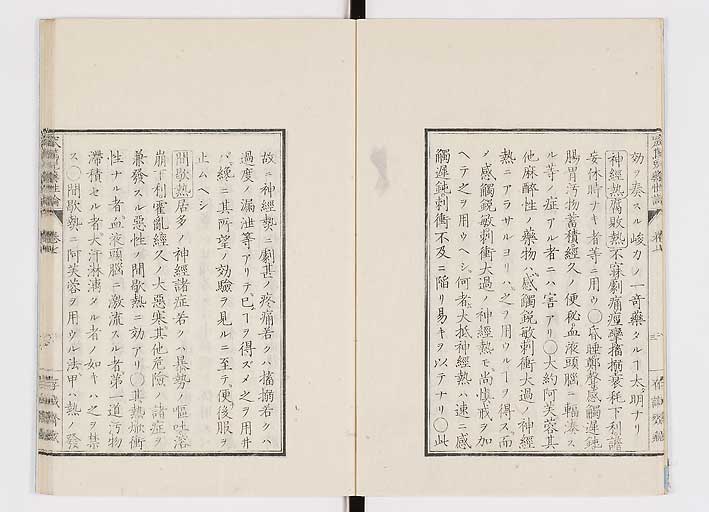 効ヲ奏スル峻力ノ一奇藥タルヿ太明ナリ
神經熱腐敗熱不寐劇痛痙攣搐搦衰耗下利譫
妄休時ナキ者等ニ用ウ〇昏睡鄭聲感觸遲鈍
腸胃汚物蓄積經久ノ便秘血液頭腦ニ輻湊ス
ル等ノ症アル者ニハ害アリ〇大約阿芙蓉其
他麻醉性ノ藥物ハ感觸鋭敏刺衝大過ノ神經
熱ニアラサルヨリハ之ヲ用ウルヿヲ得ス而
ノ感觸鋭敏刺衝大過ノ神經熱モ尚慎戒ヲ加
ヘテ之ヲ用ウヘシ何者大抵神經熱ハ速ニ感
觸遲鈍刺衝不及ニ陥リ易キヲ以テナリ〇此
故ニ神經熱ニ劇甚ノ疼痛若クハ搐搦若クハ
過度ノ漏泄等アリテ已ヿヲ得ズメ之ヲ用井
バ纔ニ其所望ノ効驗ヲ見ルニ至テ便後服ヲ
止ムヘシ
間歇熱居多ノ神經諸症若クハ暴勢ノ嘔吐溶
崩下利霍亂經久ノ大惡寒其他危險ノ諸症ヲ
兼發スル惡性ノ間歇熱ニ効アリ〇其熱焮衝
性ナル者血液頭腦ニ激流スル者第一道汚物
滯積セル者大汗淋漓タル者ノ如キハ之ヲ禁
ス〇間歇熱ニ阿芙蓉ヲ用ウル法甲ハ熱ノ發